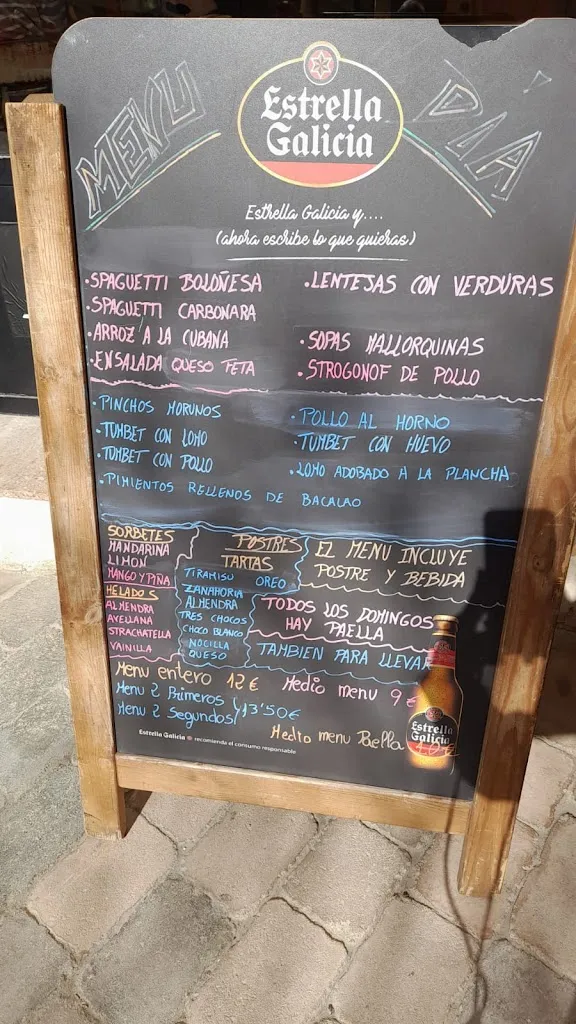 MENU DÍA
Estrella
Galicia
Estrella Galicia y....
(ahora escribe lo que quieras)
·SPAGUETTI BOLOÑESA
·SPAGUETTI CARBONARA
·ARROZ A LA CUBANA
·ENSALADA QUESO FETA
·LENTEJAS CON VERDURAS
·SOPAS MALLORQUINAS
·STROGONOF DE POLLO
·PINCHOS MORUNOS
·TUMBET CON LOMO
·TUMBET CON POLLO
·PIMIENTOS RELLENOS DE BACALAO
·POLLO AL HORNO
·TUMBET CON HUEVO
·LOMO ADOBADO A LA PLANCHA
SORBETES
MANDARINA
LIMON
MANGO Y PIÑA
HELADOS
ALMENDRA
AVELLANA
STRACHATELLA
VAINILLA
POSTRES
TARTAS
TIRAMISU OREO
ZANAHORIA
ALMENDRA
TRES CHOCOS
CHOCO BLANCO
NOCILLA
QUESO
EL MENU INCLUYE
POSTRE Y BEBIDA
TODOS LOS DOMINGOS
HAY PAELLA
TAMBIEN PARA LLEVAR
Menu entero 12€ Medio menu 9€
Menu 2 Primeros
Menu 2 Segundos
13'50€
Medio menu Paella 10€
Estrella
Galicia
Estrella Galicia recomienda el consumo responsable